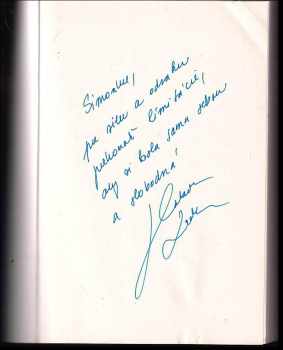 Simonke,
na silu a odvahu
prekonať limitácie,
aby si bola sama sebou
a slobodná!